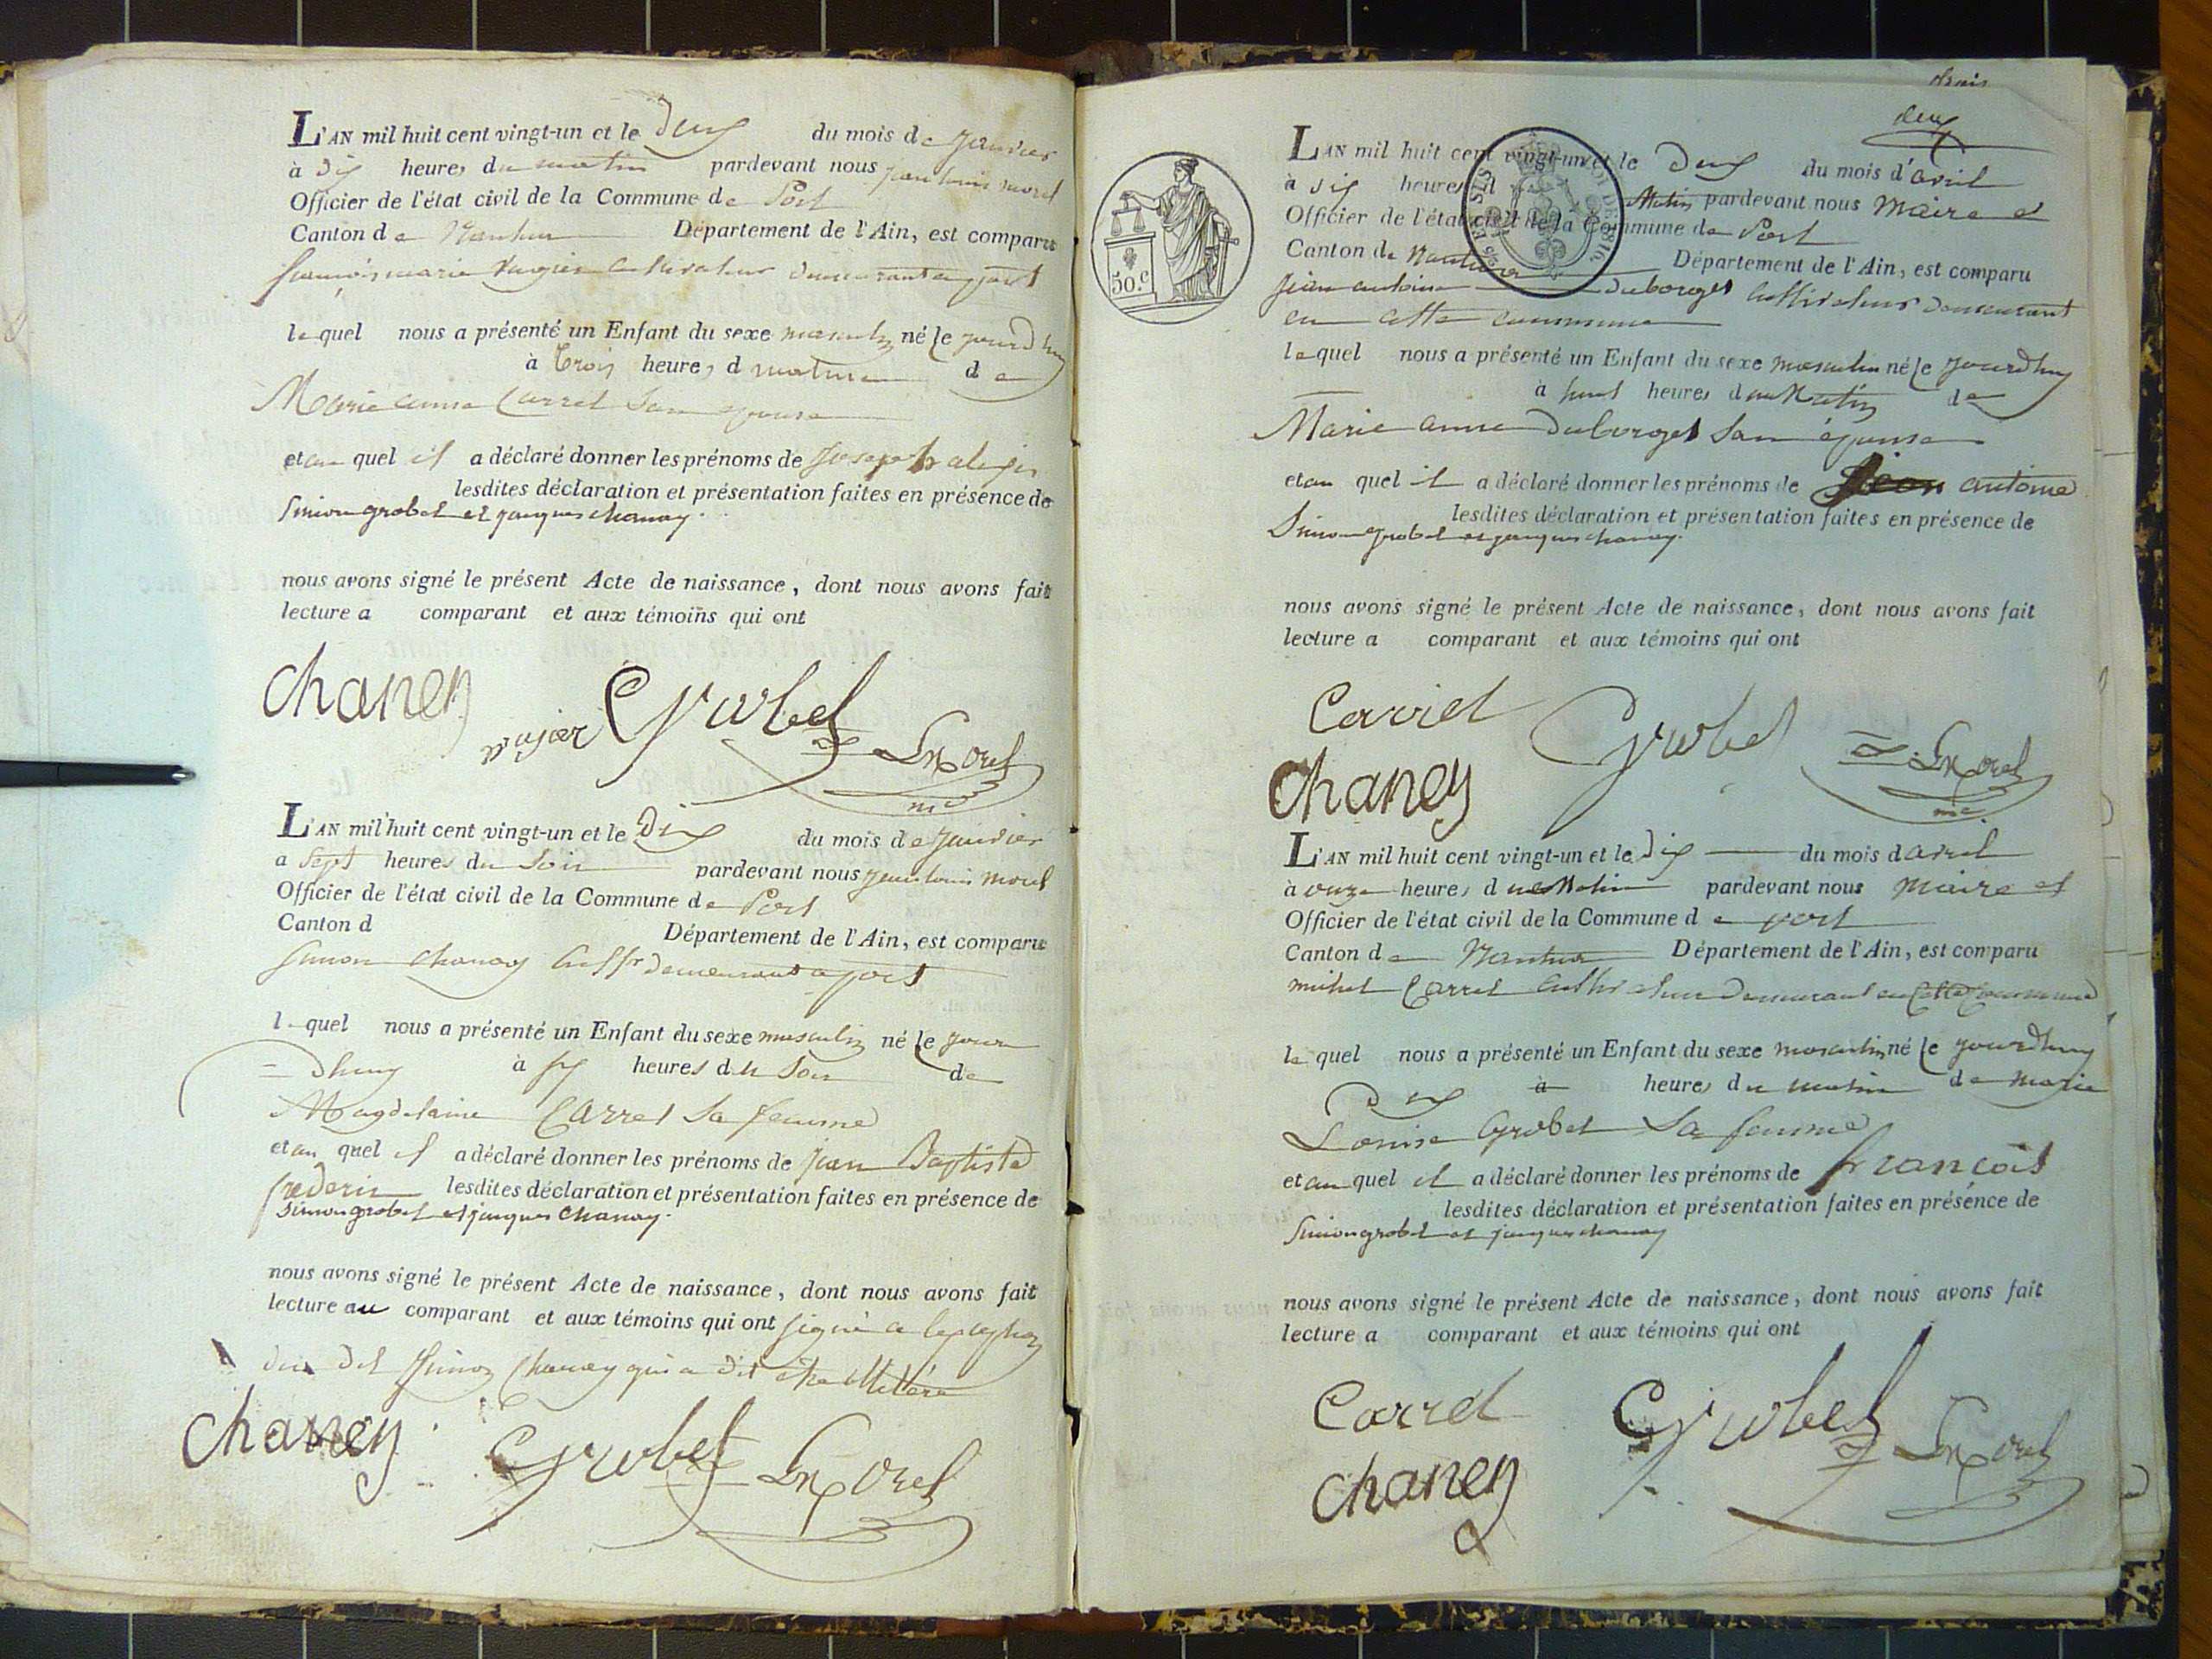 L'AN mil huit cent vingt-un et le Deux du mois de janvier
à dix heures du matin pardevant nous jean louis morel
Officier de l'état civil de la Commune de Port
Canton de Nantua Département de l'Ain, est comparu
françois marie cultivateur demeurant a port
lequel nous a présenté un Enfant du sexe masculin né le jourdhuy
à trois heures d matin de
Marie anne Carrel Son epouse
et au quel il a déclaré donner les prénoms de Joseph alexis
lesdites déclaration et présentation faites en présence de
Simon grobet et jacques chanay.
nous avons signé le présent Acte de naissance, dont nous avons fait
lecture a comparant et aux témoins qui ont
chaney
Grobet
L Morel
L'AN mil huit cent vingt-un et le Dix du mois de janvier
a Sept heures du Soir pardevant nous jean louis morel
Officier de l'état civil de la Commune de Port
Canton d Département de l'Ain, est comparu
Simon Chanay demeurant a port
lequel nous a présenté un Enfant du sexe masculin né le jour
= Dhuy à six heures du Soir de
Magdelaine Carrel Sa femme
et au quel il a déclaré donner les prénoms de jean Baptiste
frederic lesdites déclaration et présentation faites en présence de
Simon grobet et jacques Chanay.
nous avons signé le présent Acte de naissance, dont nous avons fait
lecture au comparant et aux témoins qui ont signé a
du dit Simon Chanay qui a dit etre illitéré
chaney
Grobet
L Morel
deux
50.c
L'AN mil huit cent vingt-un et le Deux du mois d'avril
à dix heures d Matin pardevant nous Maire et
Officier de l'état civil de la Commune de Port
Canton de Nantua Département de l'Ain, est comparu
jean antoine duborget Cultivateur demeurant
en cette commune
lequel nous a présenté un Enfant du sexe masculin né le jourdhuy
à heures du Matin de
Marie anne Duborget Son épouse
et au quel il a déclaré donner les prénoms de antoine
lesdites déclaration et présentation faites en présence de
Simon grobet et jacques chanay.
nous avons signé le présent Acte de naissance, dont nous avons fait
lecture a comparant et aux témoins qui ont
Carriel
Grobet
L Morel
chaney
L'AN mil huit cent vingt-un et le dix du mois d avril
à onze heures d ue Matin pardevant nous Maire et
Officier de l'état civil de la Commune de port
Canton de Nantua Département de l'Ain, est comparu
michel Carrel Cultivateur Demeurant en Cette Commune
lequel nous a présenté un Enfant du sexe masculin né le jourdhuy
Dix à heures du matin de marie
Louise Grobet Sa femme
et au quel il a déclaré donner les prénoms de françois
lesdites déclaration et présentation faites en présence de
Simon grobet et jacques chanay
nous avons signé le présent Acte de naissance, dont nous avons fait
lecture a comparant et aux témoins qui ont
Carrel
Grobet
L Morel
chaney